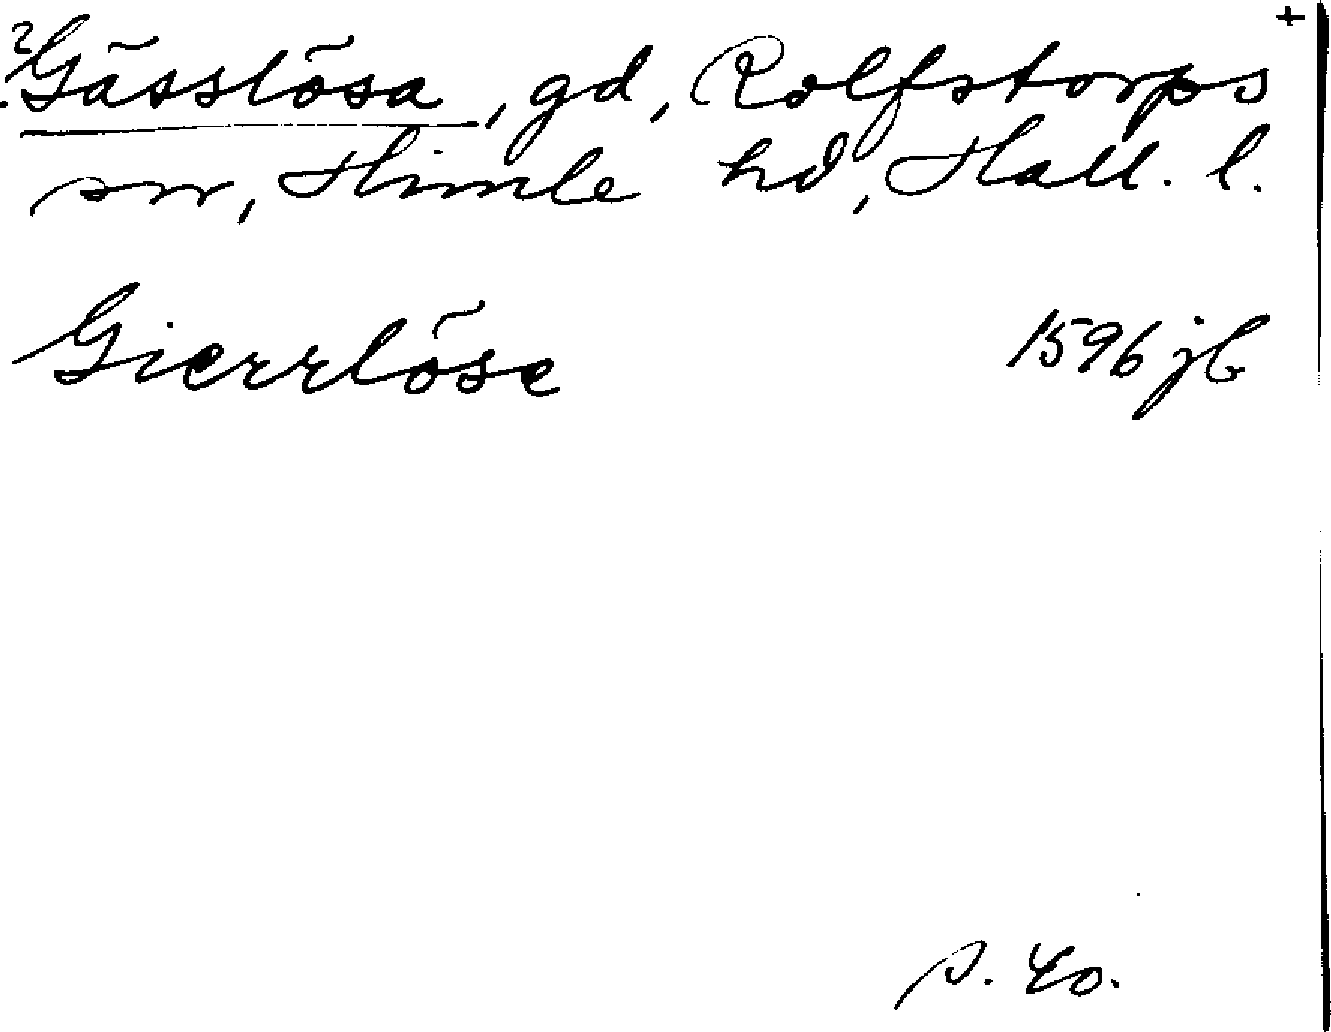 +
? Gässlösa, gd, Rolfstorps
sn, Himle hd, Hall. l.
Gierrlöse 1596 jb
s. 40.